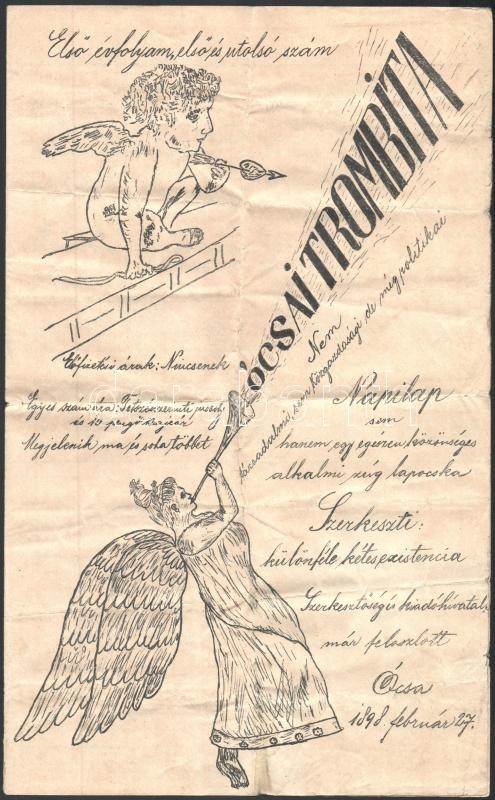 Első évfolyam, első és utolsó szám
ÓCSAI TROMBITA
Nem
társadalmi, sem közgazdasági, de még politikai
Előfizetési árak: Nincsenek
Egyes szám ára: Tetszés szerinti összeg
és 10 pengő krajczár
Megjelenik ma és soha többet
Napilap
sem
hanem egy egészen közönséges
alkalmi zúg lapocska
Szerkeszti:
különféle kétes existencia
Szerkesztőség és kiadóhivatal
már feloszlott
Ócsa
1898. február 27.
darabanth.com